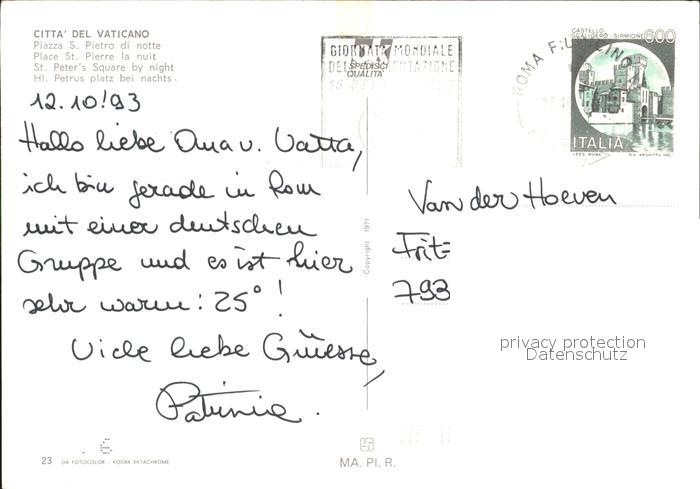 CITTA' DEL VATICANO
Piazza S. Pietro di notte
Place St. Pierre la nuit
St. Peter's Square by night
Hl. Petrus platz bei nachts
12.10!93
Hallo liebe Oma u. Vatta,
ich bin gerade in Rom
mit einer deutschen
Gruppe und es ist hier
sehr warm: 25° !
Viele liebe Grüesse,
Patrizia.
23 DA FOTOCOLOR - KODAK EKTACHROME
Copyright 1971
MA. PI. R.
GIORNATA MONDIALE
SPEDISCI
QUALITA'
ROMA FIUMICINO
CASTELLO
SCALIGERO - SIRMIONE 600
ITALIA
I.P.Z.S. ROMA
Van der Hoeven
Fritz
793
privacy protection
Datenschutz